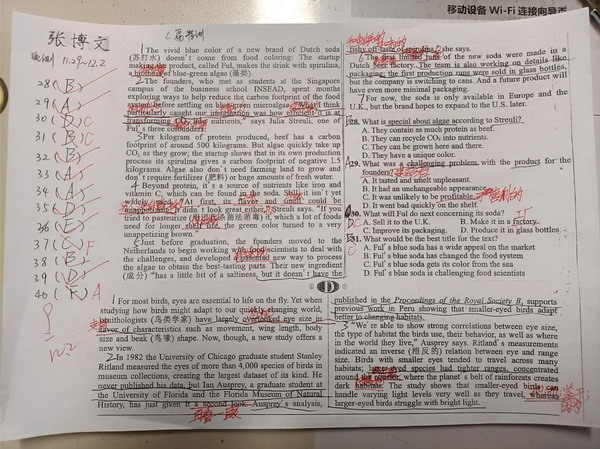 移动设备 Wi-Fi 连接向导页
张博文
C篇精训
11.29-12.2
28 (B)
29 (A)
30 (D) C
31 (B) C
32 (B)
33 (A)
34 (A)
35 (D)
36 (E)
37 (C) F
38 (B)
39 (D)
40 (F) A
1 The vivid blue color of a new brand of Dutch soda
(苏打水) doesn't come from food coloring: The startup
making the product, called Ful, makes the drink with spirulina,
a blue-green algae (藻类).
2 The founders, who met as students at the Singapore
campus of the business school INSEAD, spent months
exploring ways to help reduce the carbon footprint of the food
system before settling on blue-green microalgae. "What I think
particularly caught our imagination was how efficient it is at
transforming CO₂ into nutrients," says Julia Streuli, one of
Ful's three cofounders.
3 Per kilogram of protein produced, beef has a carbon
footprint of around 500 kilograms. But algae quickly take up
CO₂ as they grow; the startup shows that in its own production
process its spirulina gives a carbon footprint of negative 1.5
kilograms. Algae also don't need farming land to grow and
don't require fertilizer (肥料) or huge amounts of fresh water.
4 Beyond protein, it's a source of nutrients like iron and
vitamin C, which can be found in the soda. Still, it isn't yet
widely used. "At first, its flavor and smell could be
unappetizing. It didn't look great either," Streuli says. "If you
tried to pasteurize (用巴氏杀菌法消毒) it, which a lot of foods
need for longer shelf life, the green color turned to a very
unappetizing brown."
5 Just before graduation, the founders moved to the
Netherlands to begin working with food scientists to deal with
the challenges, and developed a patented new way to process
the algae to obtain the best-tasting parts. Their new ingredient
(成分) "has a little bit of saltiness, but it doesn't have the
fishy off-taste of spirulina," she says.
6 The first limited runs of the new soda were made in a
Dutch beer factory. The team is also working on details like
packaging; the first production runs were sold in glass bottles,
but the company is switching to cans. And a future product will
have even more minimal packaging.
7 For now, the soda is only available in Europe and the
U.K., but the brand hopes to expand to the U.S. later.
28. What is special about algae according to Streuli?
A. They contain as much protein as beef.
B. They can recycle CO₂ into nutrients.
C. They can be grown here and there.
D. They have a unique color.
29. What was a challenging problem with the product for the
founders?
A. It tasted and smelt unpleasant.
B. It had an unchangeable appearance.
C. It was unlikely to be profitable.
D. It went bad quickly on the shelf.
30. What will Ful do next concerning its soda?
A. Sell it to the U.K.  B. Make it in a factory.
C. Improve its packaging.  D. Produce it in glass bottles.
31. What would be the best title for the text?
A. Ful's blue soda has a wide appeal on the market
B. Ful's blue soda has changed the food system
C. Ful's blue soda gets its color from the sea
D. Ful's blue soda is challenging food scientists
D
1 For most birds, eyes are essential to life on the fly. Yet when
studying how birds might adapt to our quickly changing world,
ornithologists (鸟类学家) have largely overlooked eye size in
favor of characteristics such as movement, wing length, body
size and beak (鸟喙) shape. Now, though, a new study offers a
new view.
2 In 1982 the University of Chicago graduate student Stanley
Ritland measured the eyes of more than 4,000 species of birds in
museum collections, creating the largest dataset of its kind. He
never published his data, but Ian Ausprey, a graduate student at
the University of Florida and the Florida Museum of Natural
History, has just given it a second look. Ausprey's analysis,
published in the Proceedings of the Royal Society B, supports
previous work in Peru showing that smaller-eyed birds adapt
better to changing habitats.
3 "We're able to show strong correlations between eye size,
the type of habitat the birds use, their behavior, as well as where
in the world they live," Ausprey says. Ritland's measurements
indicated an inverse (相反的) relation between eye and range
size. Birds with smaller eyes tended to travel across many
habitats; larger-eyed species had tighter ranges, concentrated
around the equator, where the planet's belt of rainforests creates
dark habitats. The study shows that smaller-eyed birds can
handle varying light levels very well as they travel, whereas
larger-eyed birds struggle with bright light.
再看一眼